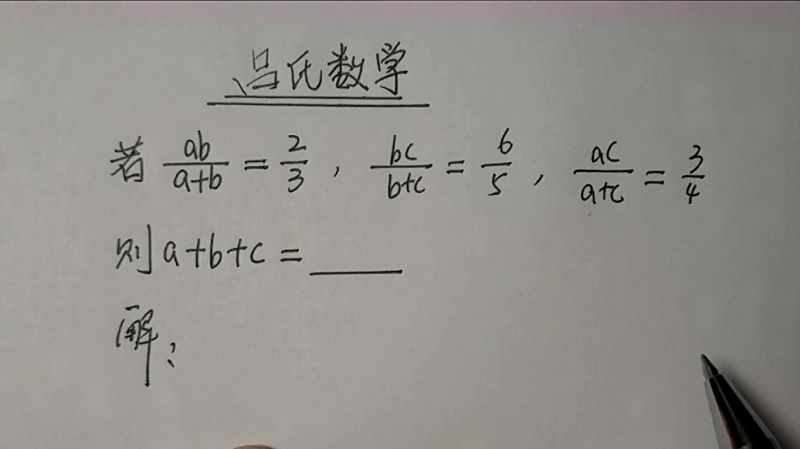 吕氏数学
若 ab/(a+b) = 2/3 , bc/(b+c) = 6/5 , ac/(a+c) = 3/4
则 a+b+c = ____
解: